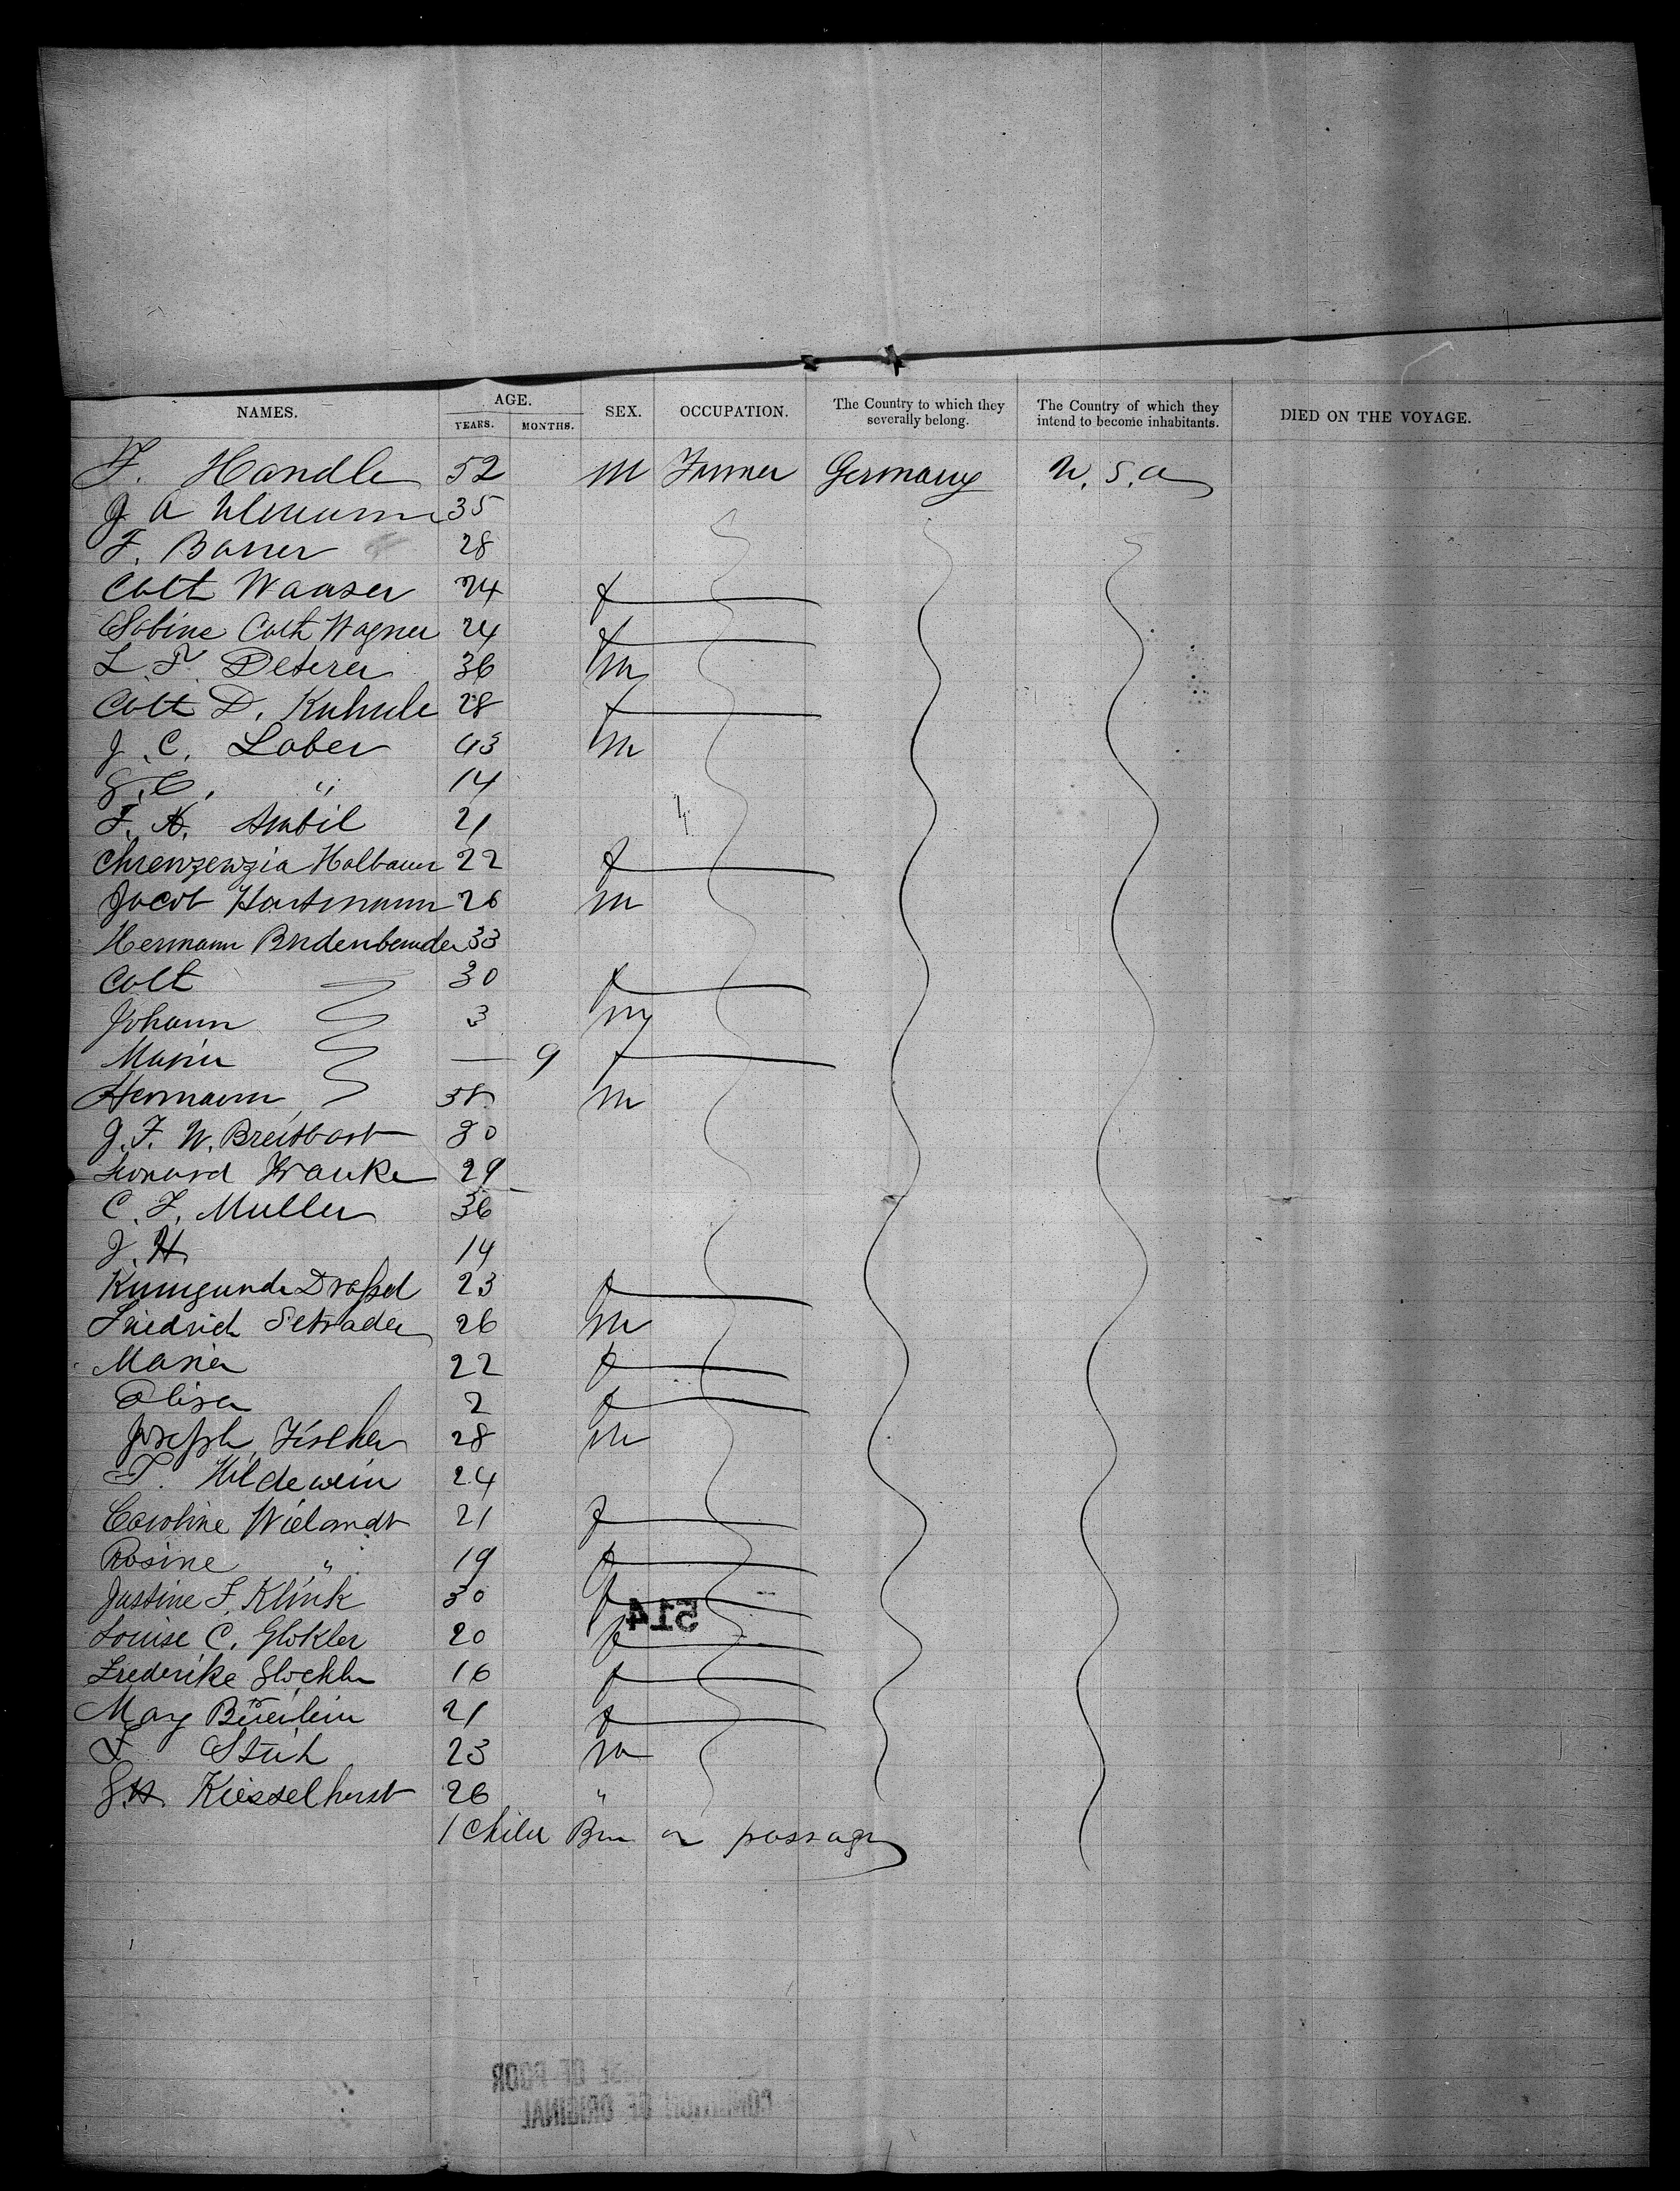 NAMES. AGE. SEX. OCCUPATION. The Country to which they severally belong. The Country of which they intend to become inhabitants. DIED ON THE VOYAGE.
YEARS. MONTHS.
F. Handle 52 m Farmer Germany U. S. a
J A 35
F. Bauer 28
Cath Waaser 24 f
Sabine Cath Wagner 24 f
L. F. Deterer 36 m
Cath D. Kuhnle 28 f
J. C. Lober 43 m
G. C. " 14
F. A. 21
Chrenzenzia Holbauer 22 f
Jacob Hartmann 26 m
Hermann 33
Cath 30 f
Johann 3 m
Maria — 9 f
Hermann m
J. F. W. Breitbart 30
Leonard Franke 29
C. F. Muller 36
J. H. 14
Kunigunde Draßel 23 f
Friedrich Schrader 26 m
Maria 22 f
Elisa 2 f
Joseph Fischer 28 m
T. Hildewein 24
Caroline Wielandt 21 f
Rosine " 19 f
Justine F. Klink 30 f
514
Louise C. Glokler 20 f
Frederike Glockler 16 f
Mary 21 f
F. Stuh 23 m
G. H. Kiesselhorst 26 "
1 Child Born on passage
OF POOR
CONDITION OF ORIGINAL